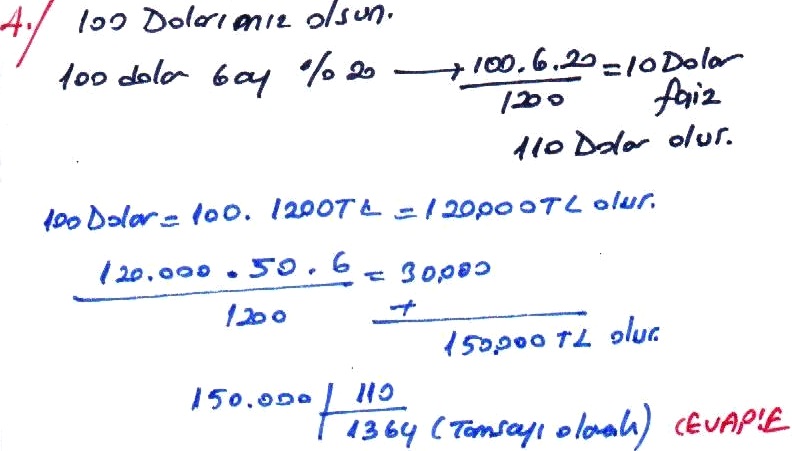 4./ 100 Dolarımız olsun.
100 dolar 6 ay % 20 → 100.6.20 / 1200 = 10 Dolar faiz
110 Dolar olur.
100 Dolar = 100. 1200TL = 120,000TL olur.
120.000 . 50 . 6 / 1200 = 30,000
+
150,000 TL olur.
150.000 | 110
1364 (Tamsayı olarak) CEVAP: E